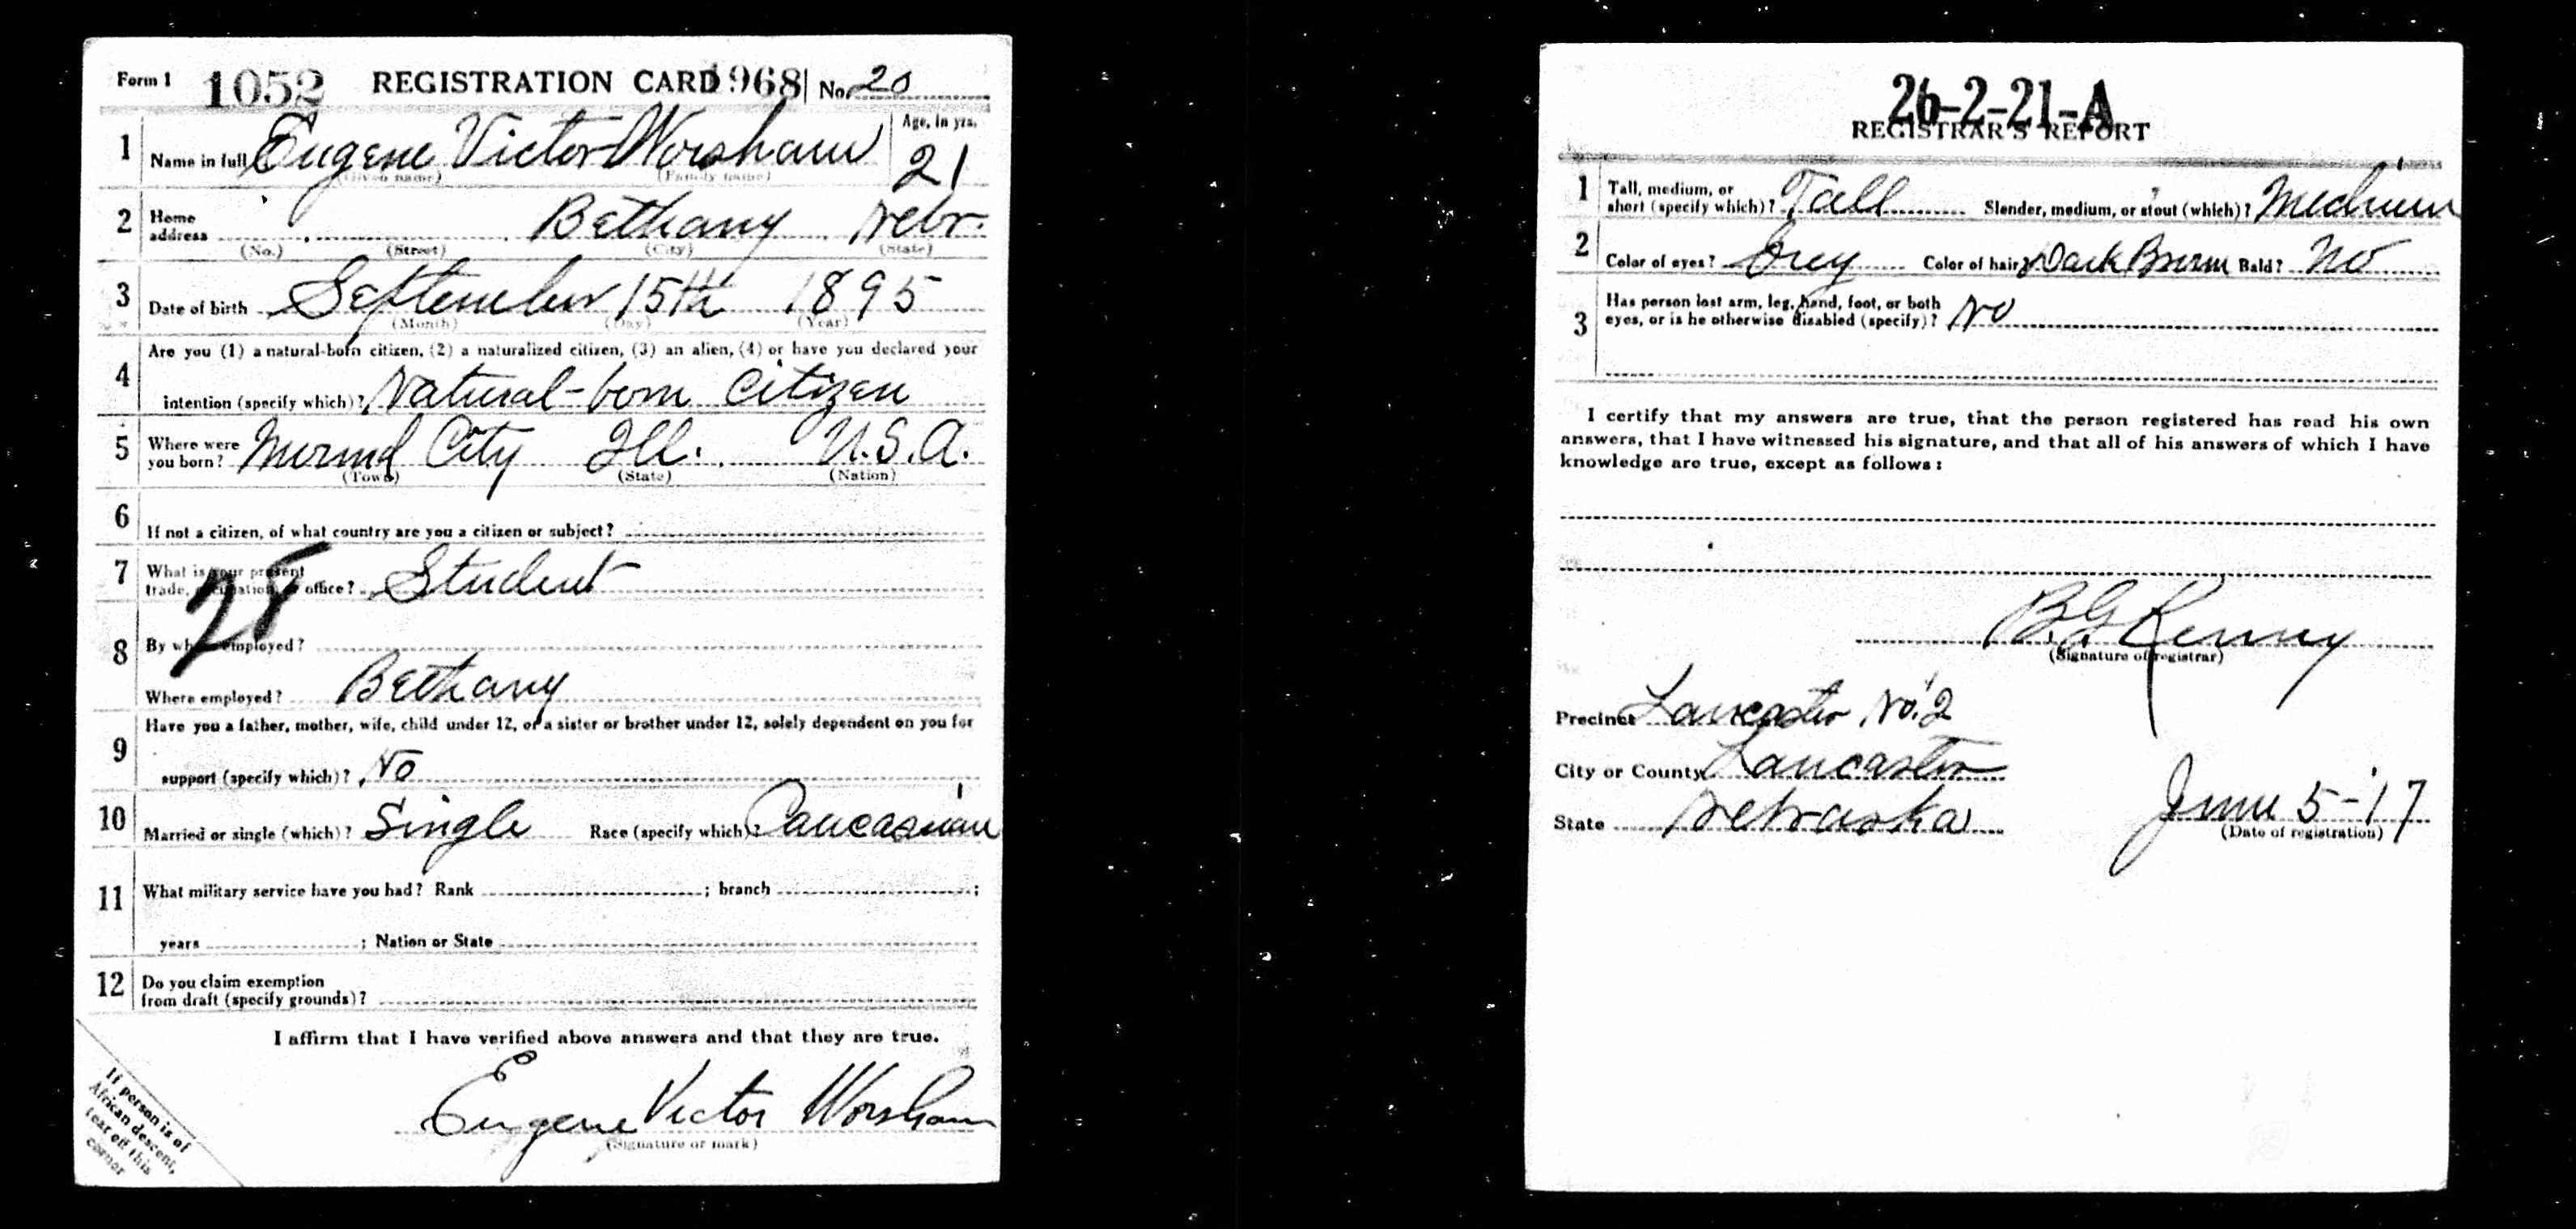 Form 1 1052 REGISTRATION CARD 968 No. 20
1 Name in full Eugene Victor Worsham Age, in yrs. 21
(Given name) (Family name)
2 Home address Bethany Nebr.
(No.) (Street) (City) (State)
3 Date of birth September 15th 1895
(Month) (Day) (Year)
4 Are you (1) a natural-born citizen, (2) a naturalized citizen, (3) an alien, (4) or have you declared your
intention (specify which)? Natural-born Citizen
5 Where were you born? City Ill. U.S.A.
(Town) (State) (Nation)
6 If not a citizen, of what country are you a citizen or subject?
7 What is your present
trade, occupation, or office? Student
8 By whom employed?
Where employed? Bethany
9 Have you a father, mother, wife, child under 12, or a sister or brother under 12, solely dependent on you for
support (specify which)? No
10 Married or single (which)? Single Race (specify which)? Caucasian
11 What military service have you had? Rank ; branch ;
years ; Nation or State
12 Do you claim exemption
from draft (specify grounds)?
I affirm that I have verified above answers and that they are true.
Eugene Victor Worsham
(Signature or mark)
If person is of
African descent,
tear off this
corner
26-2-21-A
REGISTRAR'S REPORT
1 Tall, medium, or
short (specify which)? Tall Slender, medium, or stout (which)? Medium
2 Color of eyes? Grey Color of hair? Dark Brown Bald? No
3 Has person lost arm, leg, hand, foot, or both
eyes, or is he otherwise disabled (specify)? No
I certify that my answers are true, that the person registered has read his own
answers, that I have witnessed his signature, and that all of his answers of which I have
knowledge are true, except as follows:
B.G. Kenny
(Signature of registrar)
Precinct Lancaster No. 2
City or County Lancaster
State Nebraska June 5-17
(Date of registration)